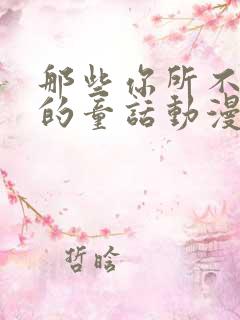 那些你所不
的童話動漫
哲晗